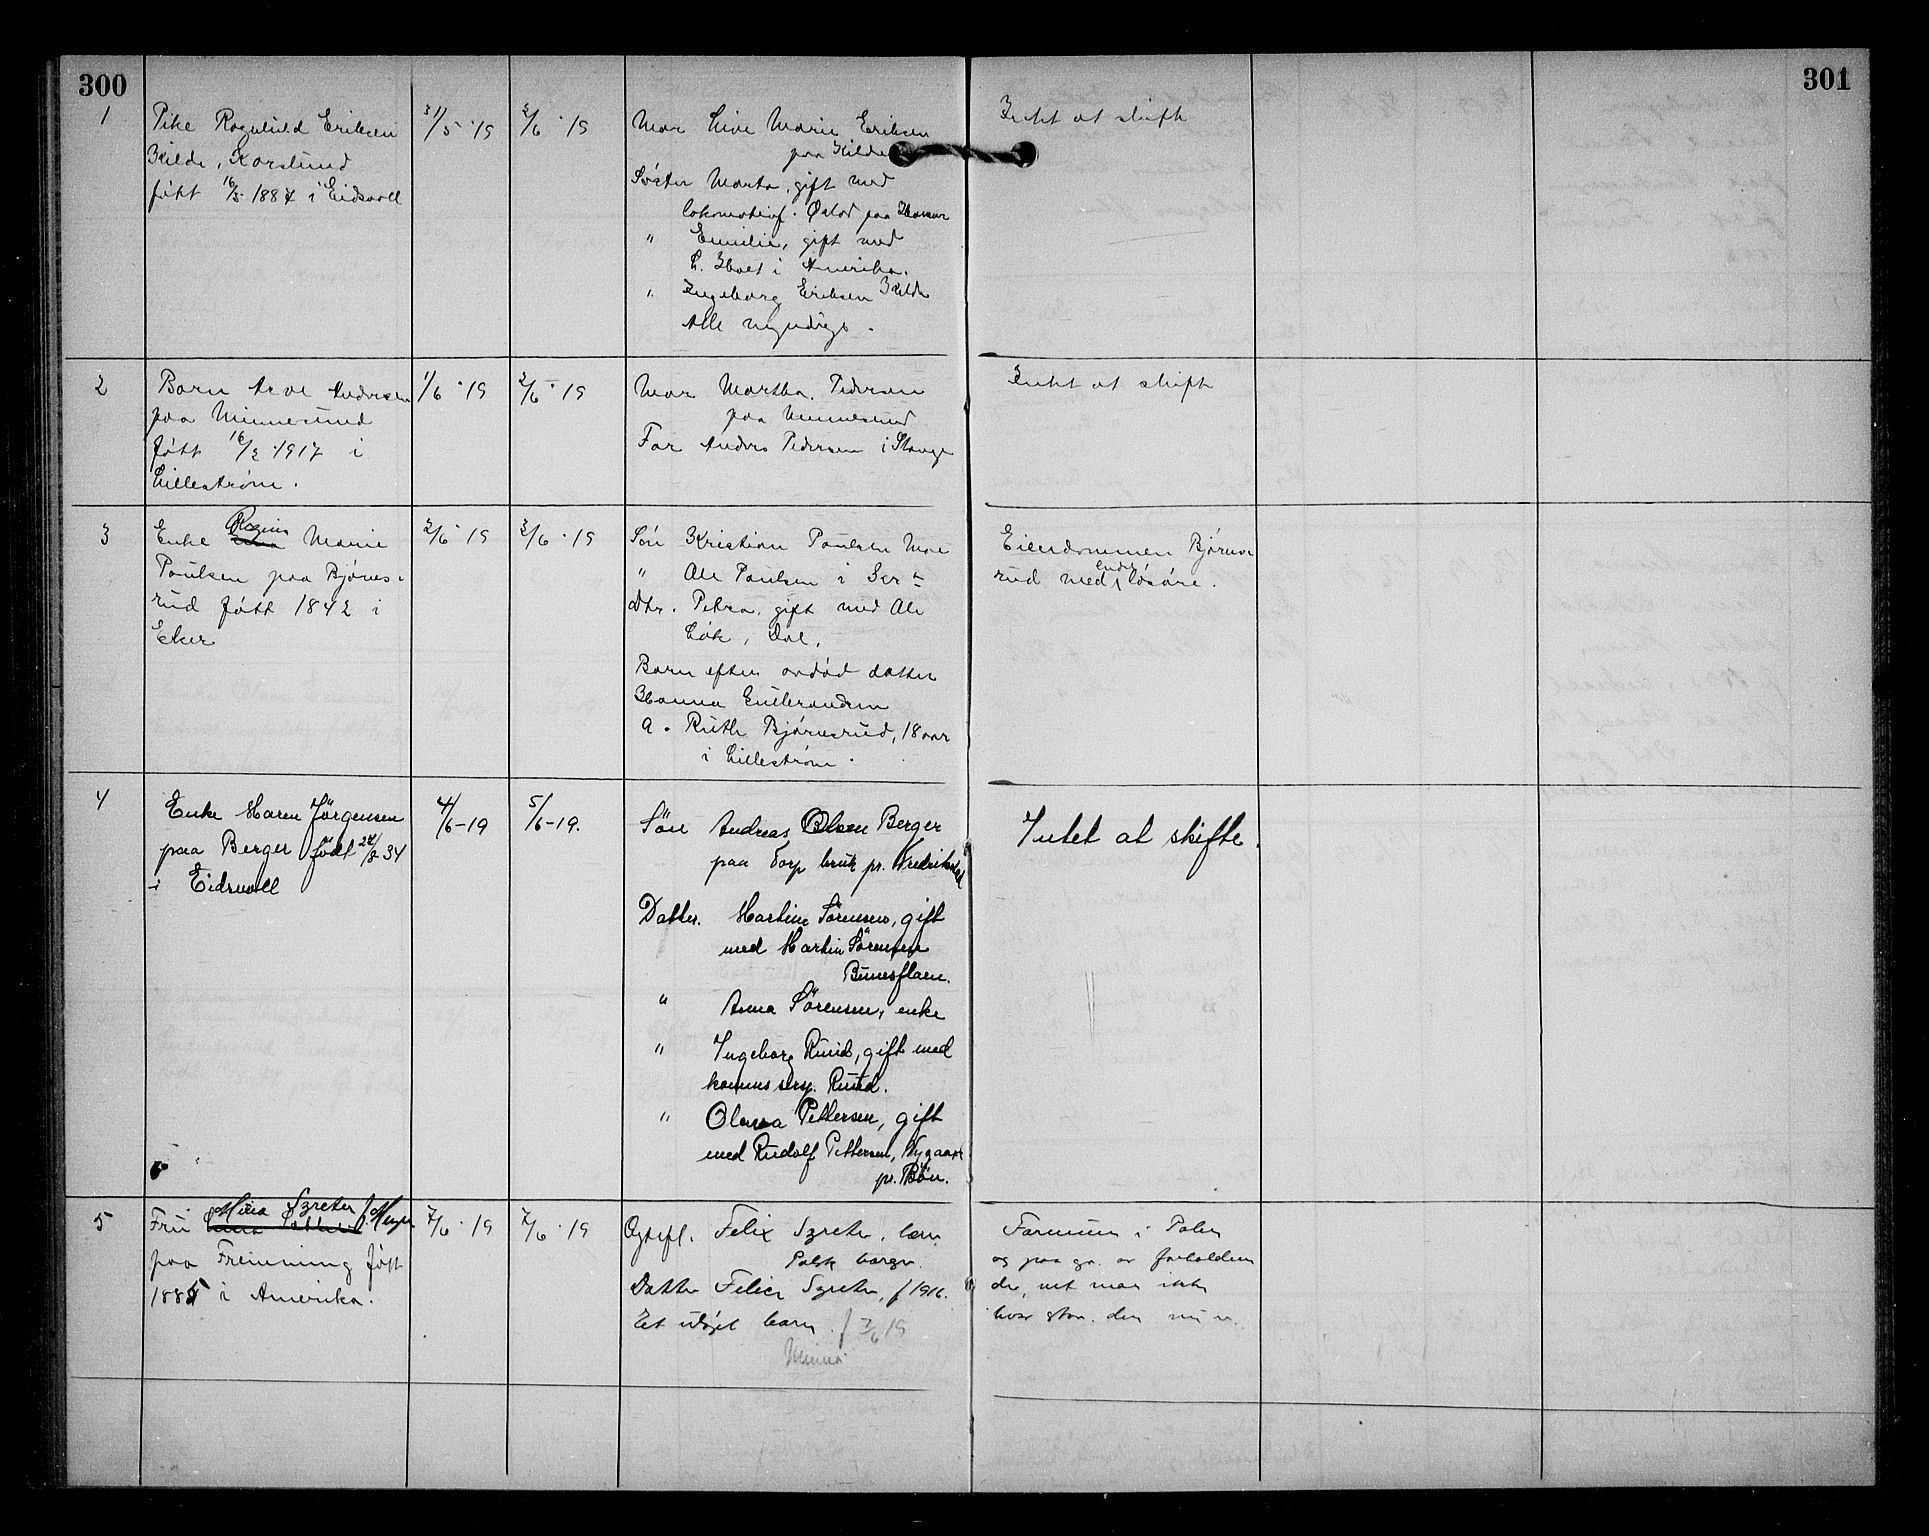 300
301
1
Pike Ragnhild Eriksen
Kilde, Korslund
født 16/5 1887 i Eidsvoll
31/5-19
2/6-19
Mor Live Marie Eriksen
paa Kilde
Søster Marta, gift med
lokomotivf. paa Hamar
" Emilie, gift med
i Amerika.
" Ingeborg Eriksen Kilde
Alle myndige.
Intet at skifte
2
Barn Arve Andersen
paa Minnesund
født 16/2 1917 i
Lillestrøm.
1/6-19
2/6-19
Mor Martha Pedersen
paa Minnesund
Far Anders Pedersen i Stange
Intet at skifte
3
Enke Regine Marie
Poulsen paa Bjørnes-
rud født 1842 i
Eker
2/6-19
3/6-19
Søn Kristian Poulsen Moe
" Ole Poulsen i
Dtr. Petra, gift med Ole
Løk, Dal.
Barn efter avdød datter
Hanna Gulbrandsen
a. Ruth Bjørnsrud, 18 aar
i Lillestrøm.
Eiendommen Bjørnes-
rud med endel løsøre.
4
Enke Maren Jørgensen
paa Berger født 24/8 34
i Eidsvoll
4/6-19
5/6-19.
Søn Andreas Olsen Berger
paa Torp bruk pr. Fredrikstad
Datter. Martine Sørensen, gift
med Martin Sørensen
Bunesflaen.
" Anna Sørensen, enke
" Ingeborg Ruud, gift med
Ruud.
" Olava Pettersen, gift
med Rudolf Pettersen, Nygaard
pr. Bøn.
Intet at skifte.
5
Mina Szreter f. Meyer
Fru
paa Fremming født
1885 i Amerika.
7/6-19
7/6-19
Egtefl. Felix Szreter,
Polsk borger.
Datter Felicia Szreter, f 1916.
Et udøpt barn f 7/6 19
Minna
Formuen i Polen
og paa gr. av forholdene
der, vet man ikke
hvor stor den nu er.